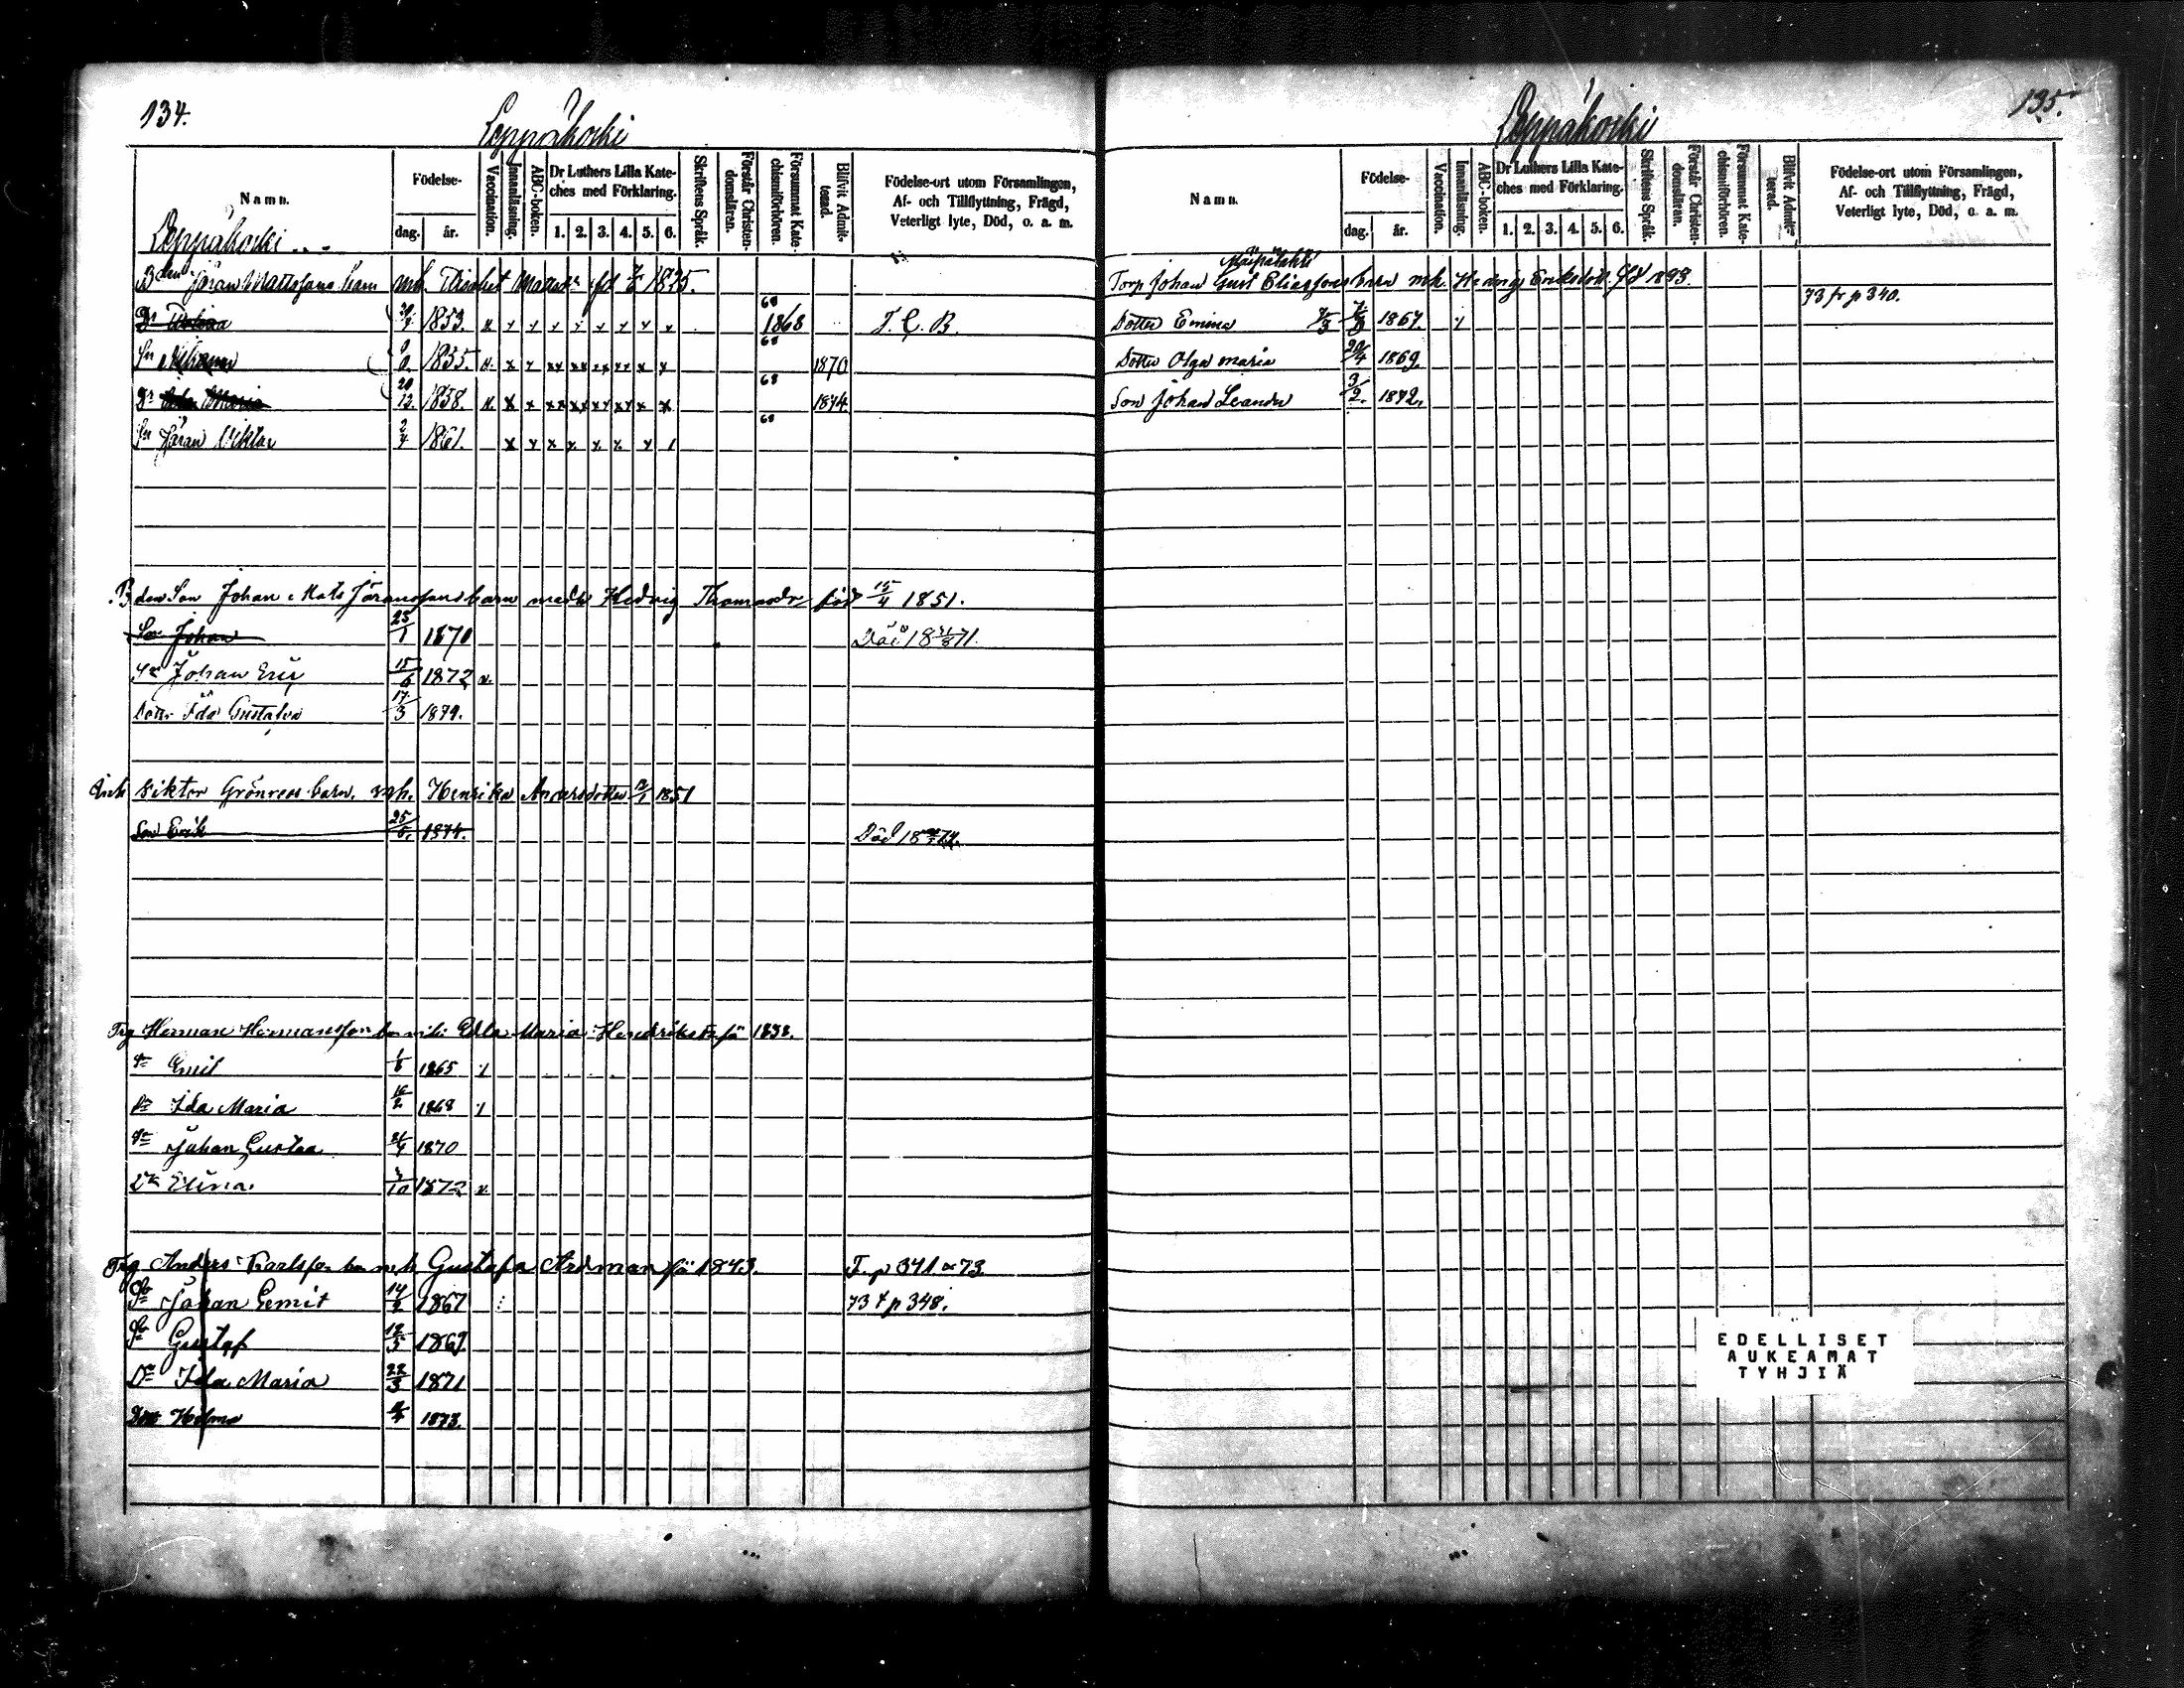 134.
Leppäkoski
Namn.
Födelse-
dag.
år.
Vaccination.
Innanläsning.
ABC-boken.
Dr Luthers Lilla Kate-
ches med Förklaring.
1. 2. 3. 4. 5. 6.
Skriftens Språk.
Förstår Christen-
domsläran.
Försummat Kate-
chismiförhören.
Blifvit Admit-
terad.
Födelse-ort utom Församlingen,
Af- och Tillflyttning, Frägd,
Veterligt lyte, Död, o. a. m.
Leppäkoski
Göran Mattssons barn mh. Elisabet 1825.
Dr 1853. 1868
Sn Johan 1835. 1870
Dr Maria 20/12. 1858. 1874
Sn Göran Viktor 2/4 1861.
Bdens Son Johan Mats Jöranssons barn med h Hedvig Thomasdr född 15/4 1851.
Son Johan 23/1 1870 Död 18 71.
Sn Johan Eric 15/6 1872
Dotter Ida Gustafva 17/3 1874.
Viktor Grönroos barn. mh. Henrika Andersdotter 1851
Son Erik 25/6. 1874. Död 18 74.
Trp Herman Hermansson barn mh Edla Maria Hendriksdr fö 1838.
Sn Emil 1/6 1865
Dr Ida Maria 16/2 1868
Sn Johan Gustaa 21/4 1870
Dr Elina 1872
Trp Anders Karlsson barn mh Gustafa Ardman fö 1843. F. p 341 73.
Sn Johan Eemit 14/2 1867 73 f p 348.
Sn Gustaf 12/5 1869
Dr Ida Maria 22/3 1871
Dr Hilma 1873.
135.
Leppäkoski
Namn.
Födelse-
dag.
år.
Vaccination.
Innanläsning.
ABC-boken.
Dr Luthers Lilla Kate-
ches med Förklaring.
1. 2. 3. 4. 5. 6.
Skriftens Språk.
Förstår Christen-
domsläran.
Försummat Kate-
chismiförhören.
Blifvit Admit-
terad.
Födelse-ort utom Församlingen,
Af- och Tillflyttning, Frägd,
Veterligt lyte, Död, o. a. m.
Torp Johan Gust Eliassons barn mh. Hedvig Eriksdott.
73 fr p 340.
Dotter Emma 1867.
Dotter Olga Maria 20/4 1869.
Son Johan Leander 3/2. 1872.
EDELLISET
AUKEAMAT
TYHJIÄ